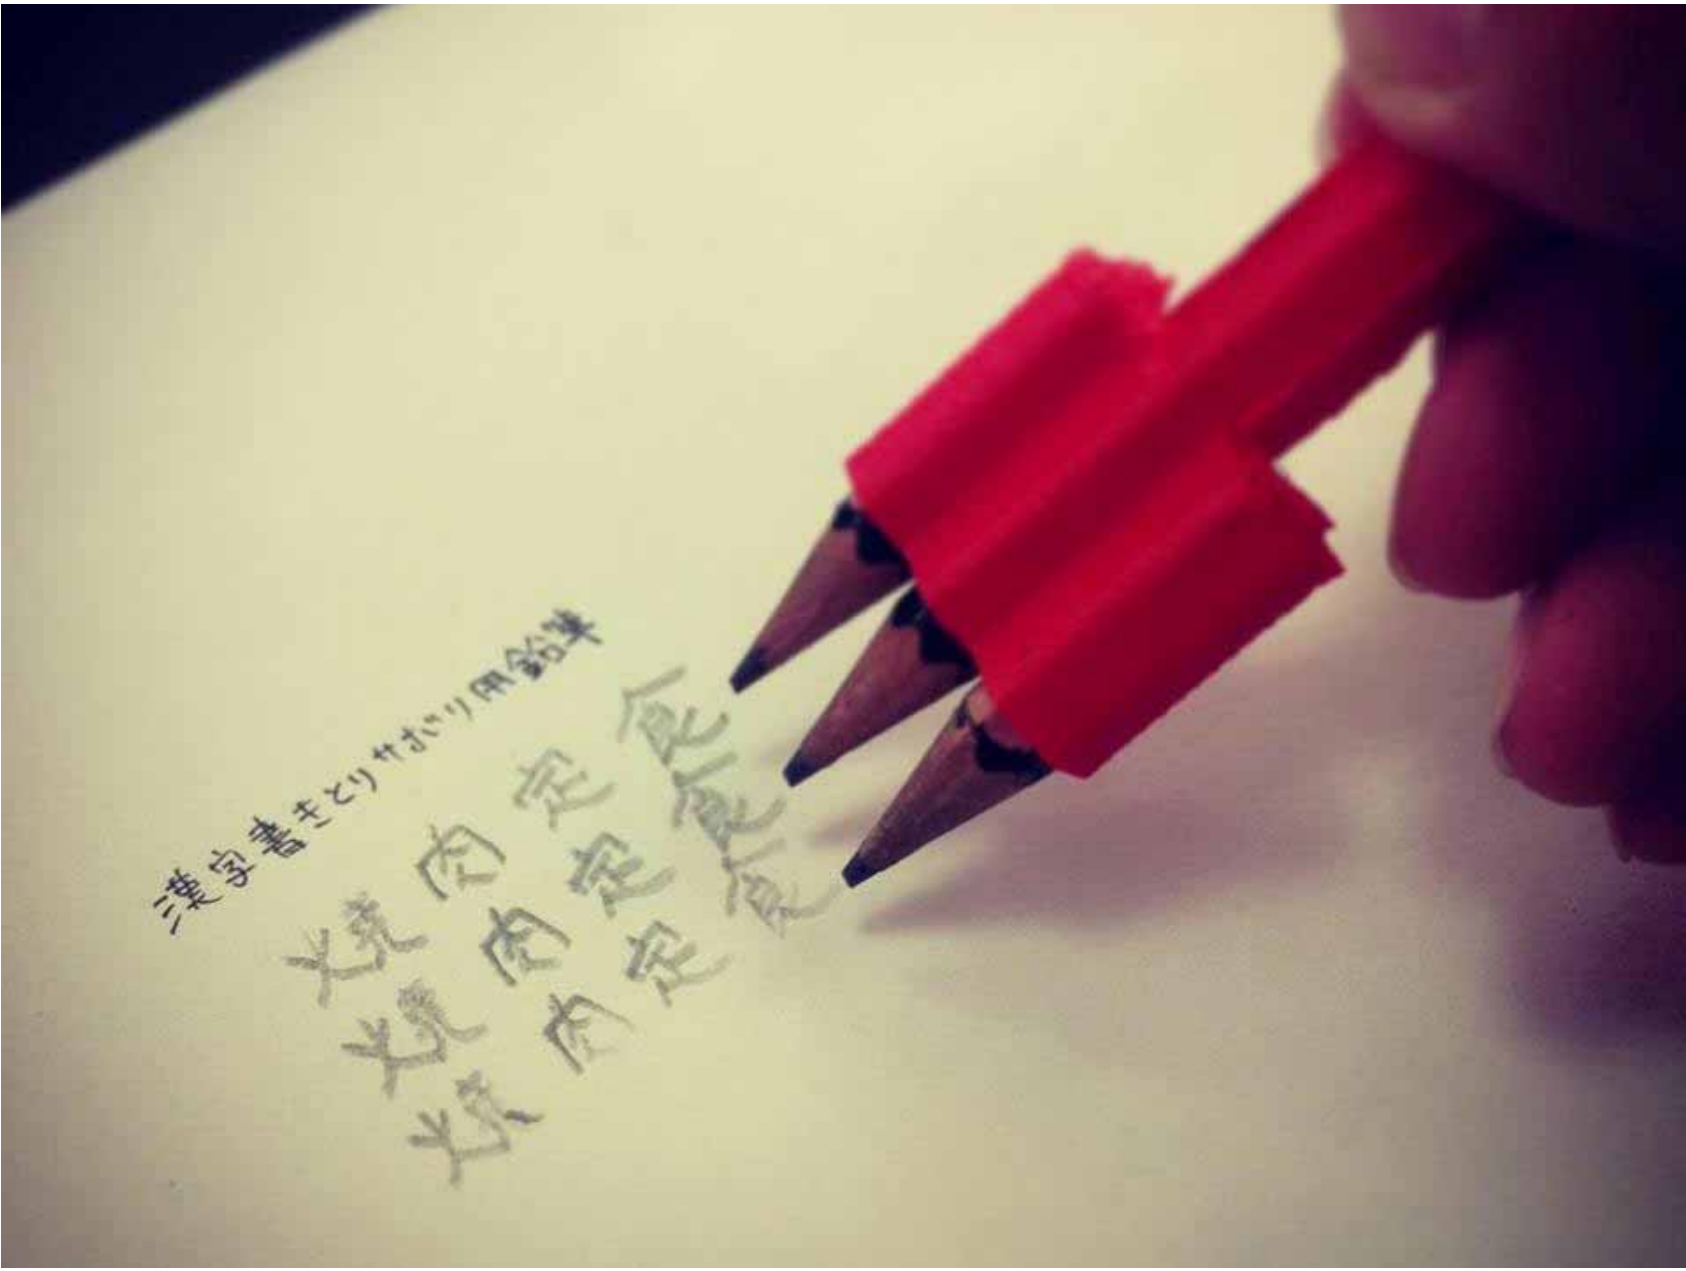 漢字書きとりサボり用鉛筆
焼肉定食
焼肉定食
焼肉定食